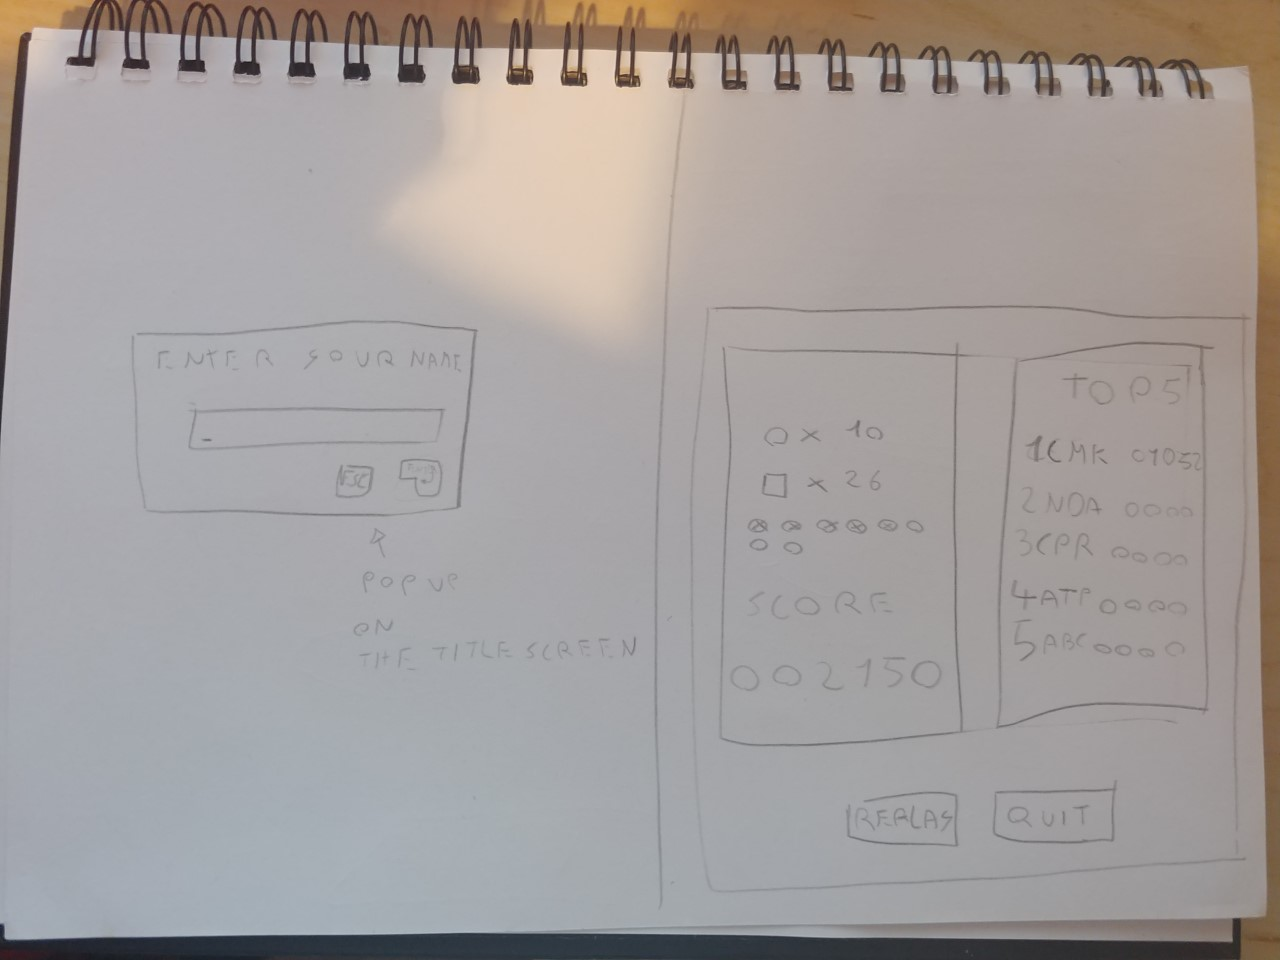 ENTER YOUR NAME
ESC
POP UP
ON
THE TITLE SCREEN
x 10
x 26
SCORE
002150
TOP 5
1 CMK 01052
2 NDA 0000
3 CPR 0000
4 ATP 0000
5 ABC 0000
REPLAY
QUIT